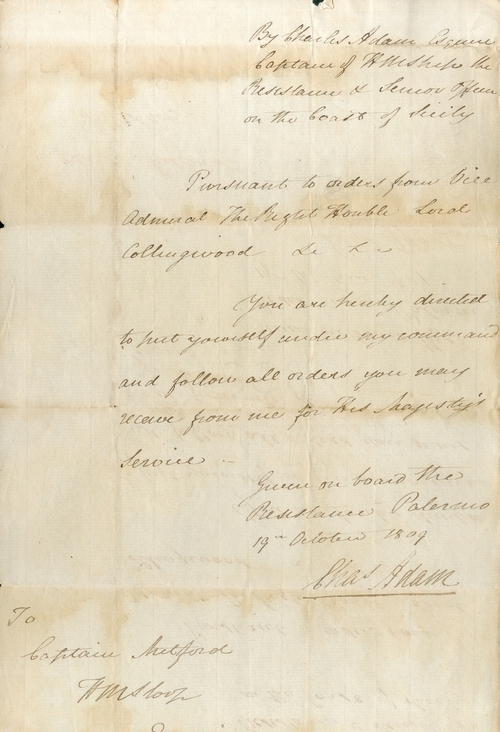 By Charles Adam Esquire
Captain of HMShip the
Resistance & Senior Officer
on the Coast of Sicily
Pursuant to orders from Vice
Admiral The Right Honble Lord
Collingwood &c &c
You are hereby directed
to put yourself under my command
and follow all orders you may
receive from me for His Majesty's
Service
Given on board the
Resistance Palermo
19th October 1809
Chas Adam
To
Captain Mitford
HMSloop